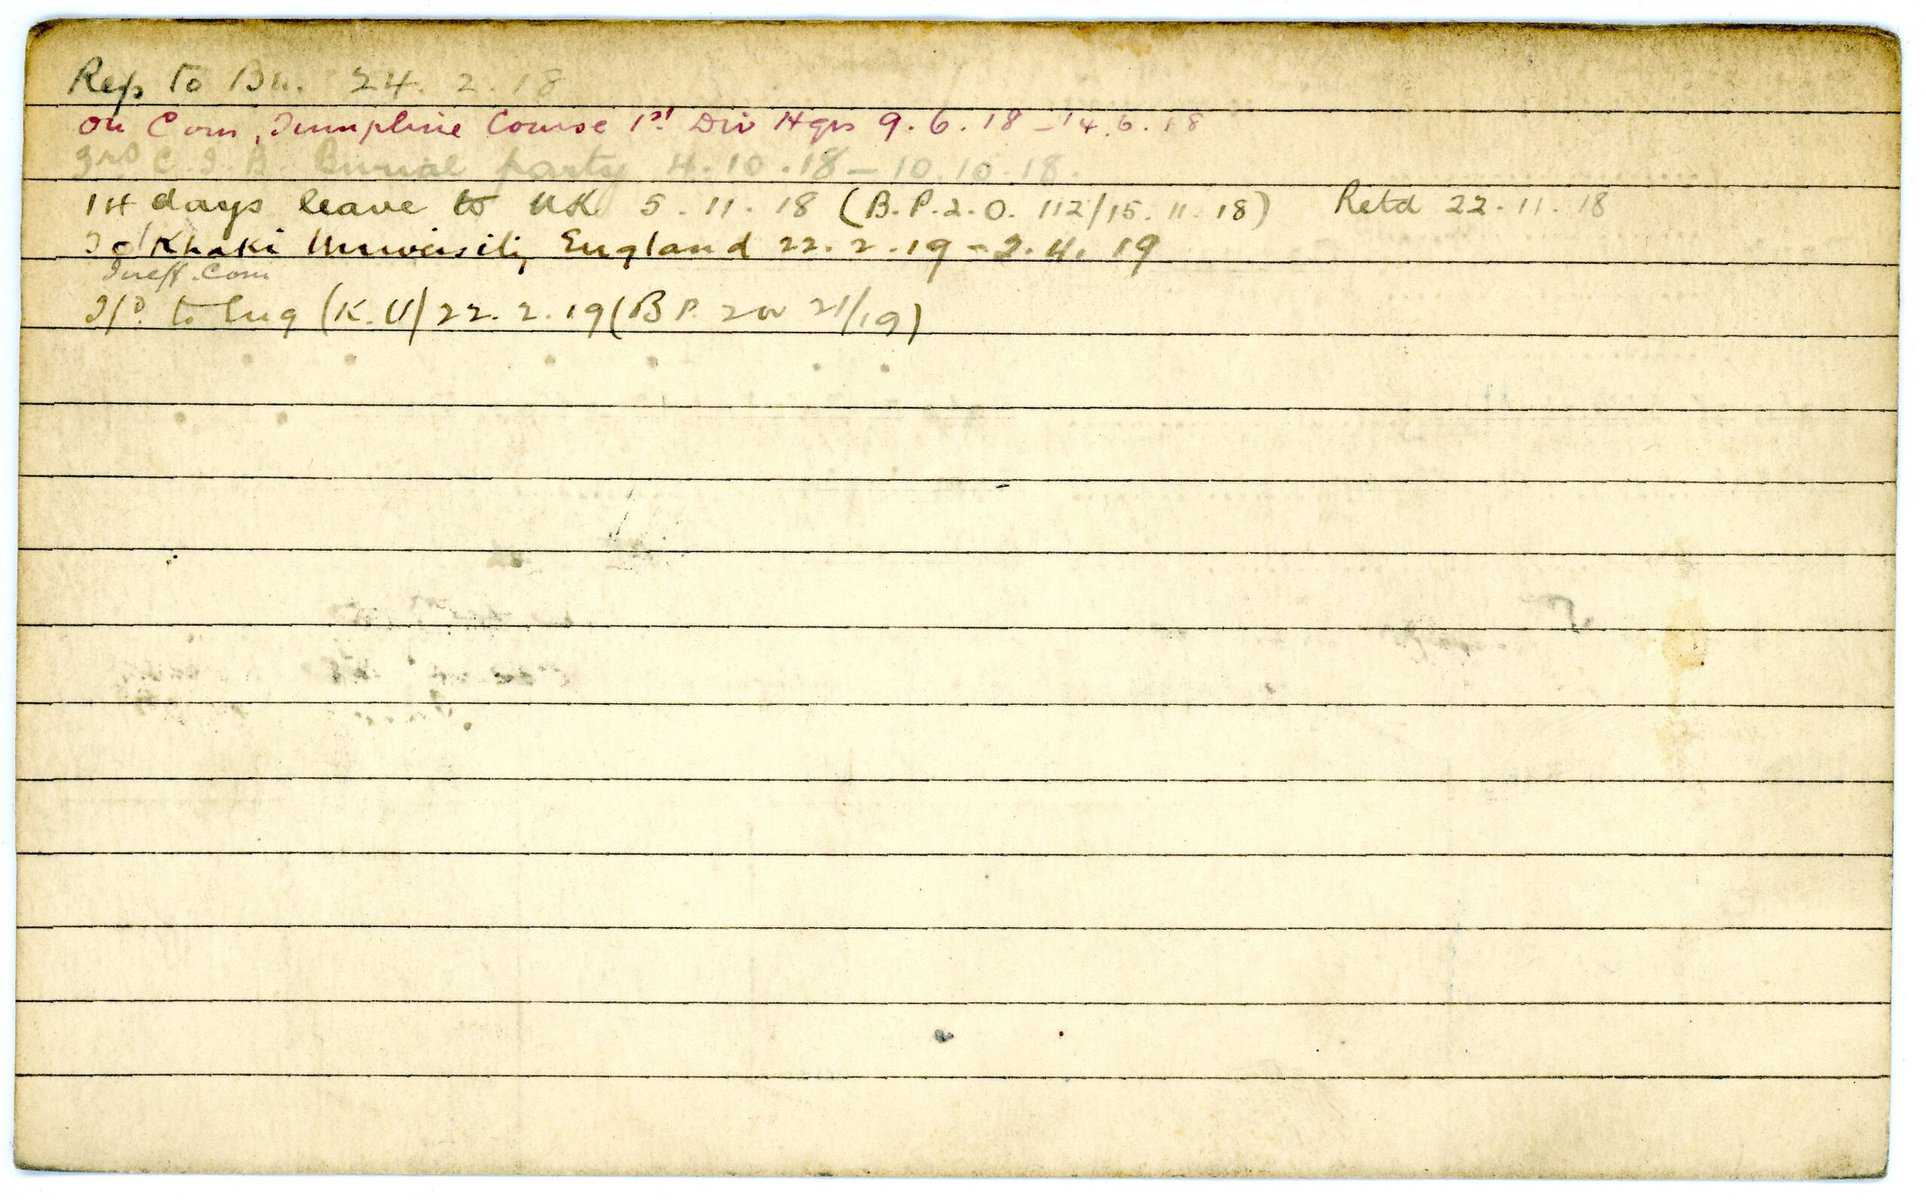 Rep to Bn. 24. 2. 18
On Com, Tumpline Course 1st Div Hqrs 9. 6. 18 - 14. 6. 18
3rd C. I. B. Burial party 4. 10. 18 - 10. 10. 18.
14 days leave to UK 5. 11. 18 (B.P.2.O. 112/15. 11. 18) Retd 22. 11. 18
To Khaki University England 22. 2. 19 - 2. 4. 19
Ineff. Com
to Eng (K.U) 22. 2. 19 (B P. 2 21/19)